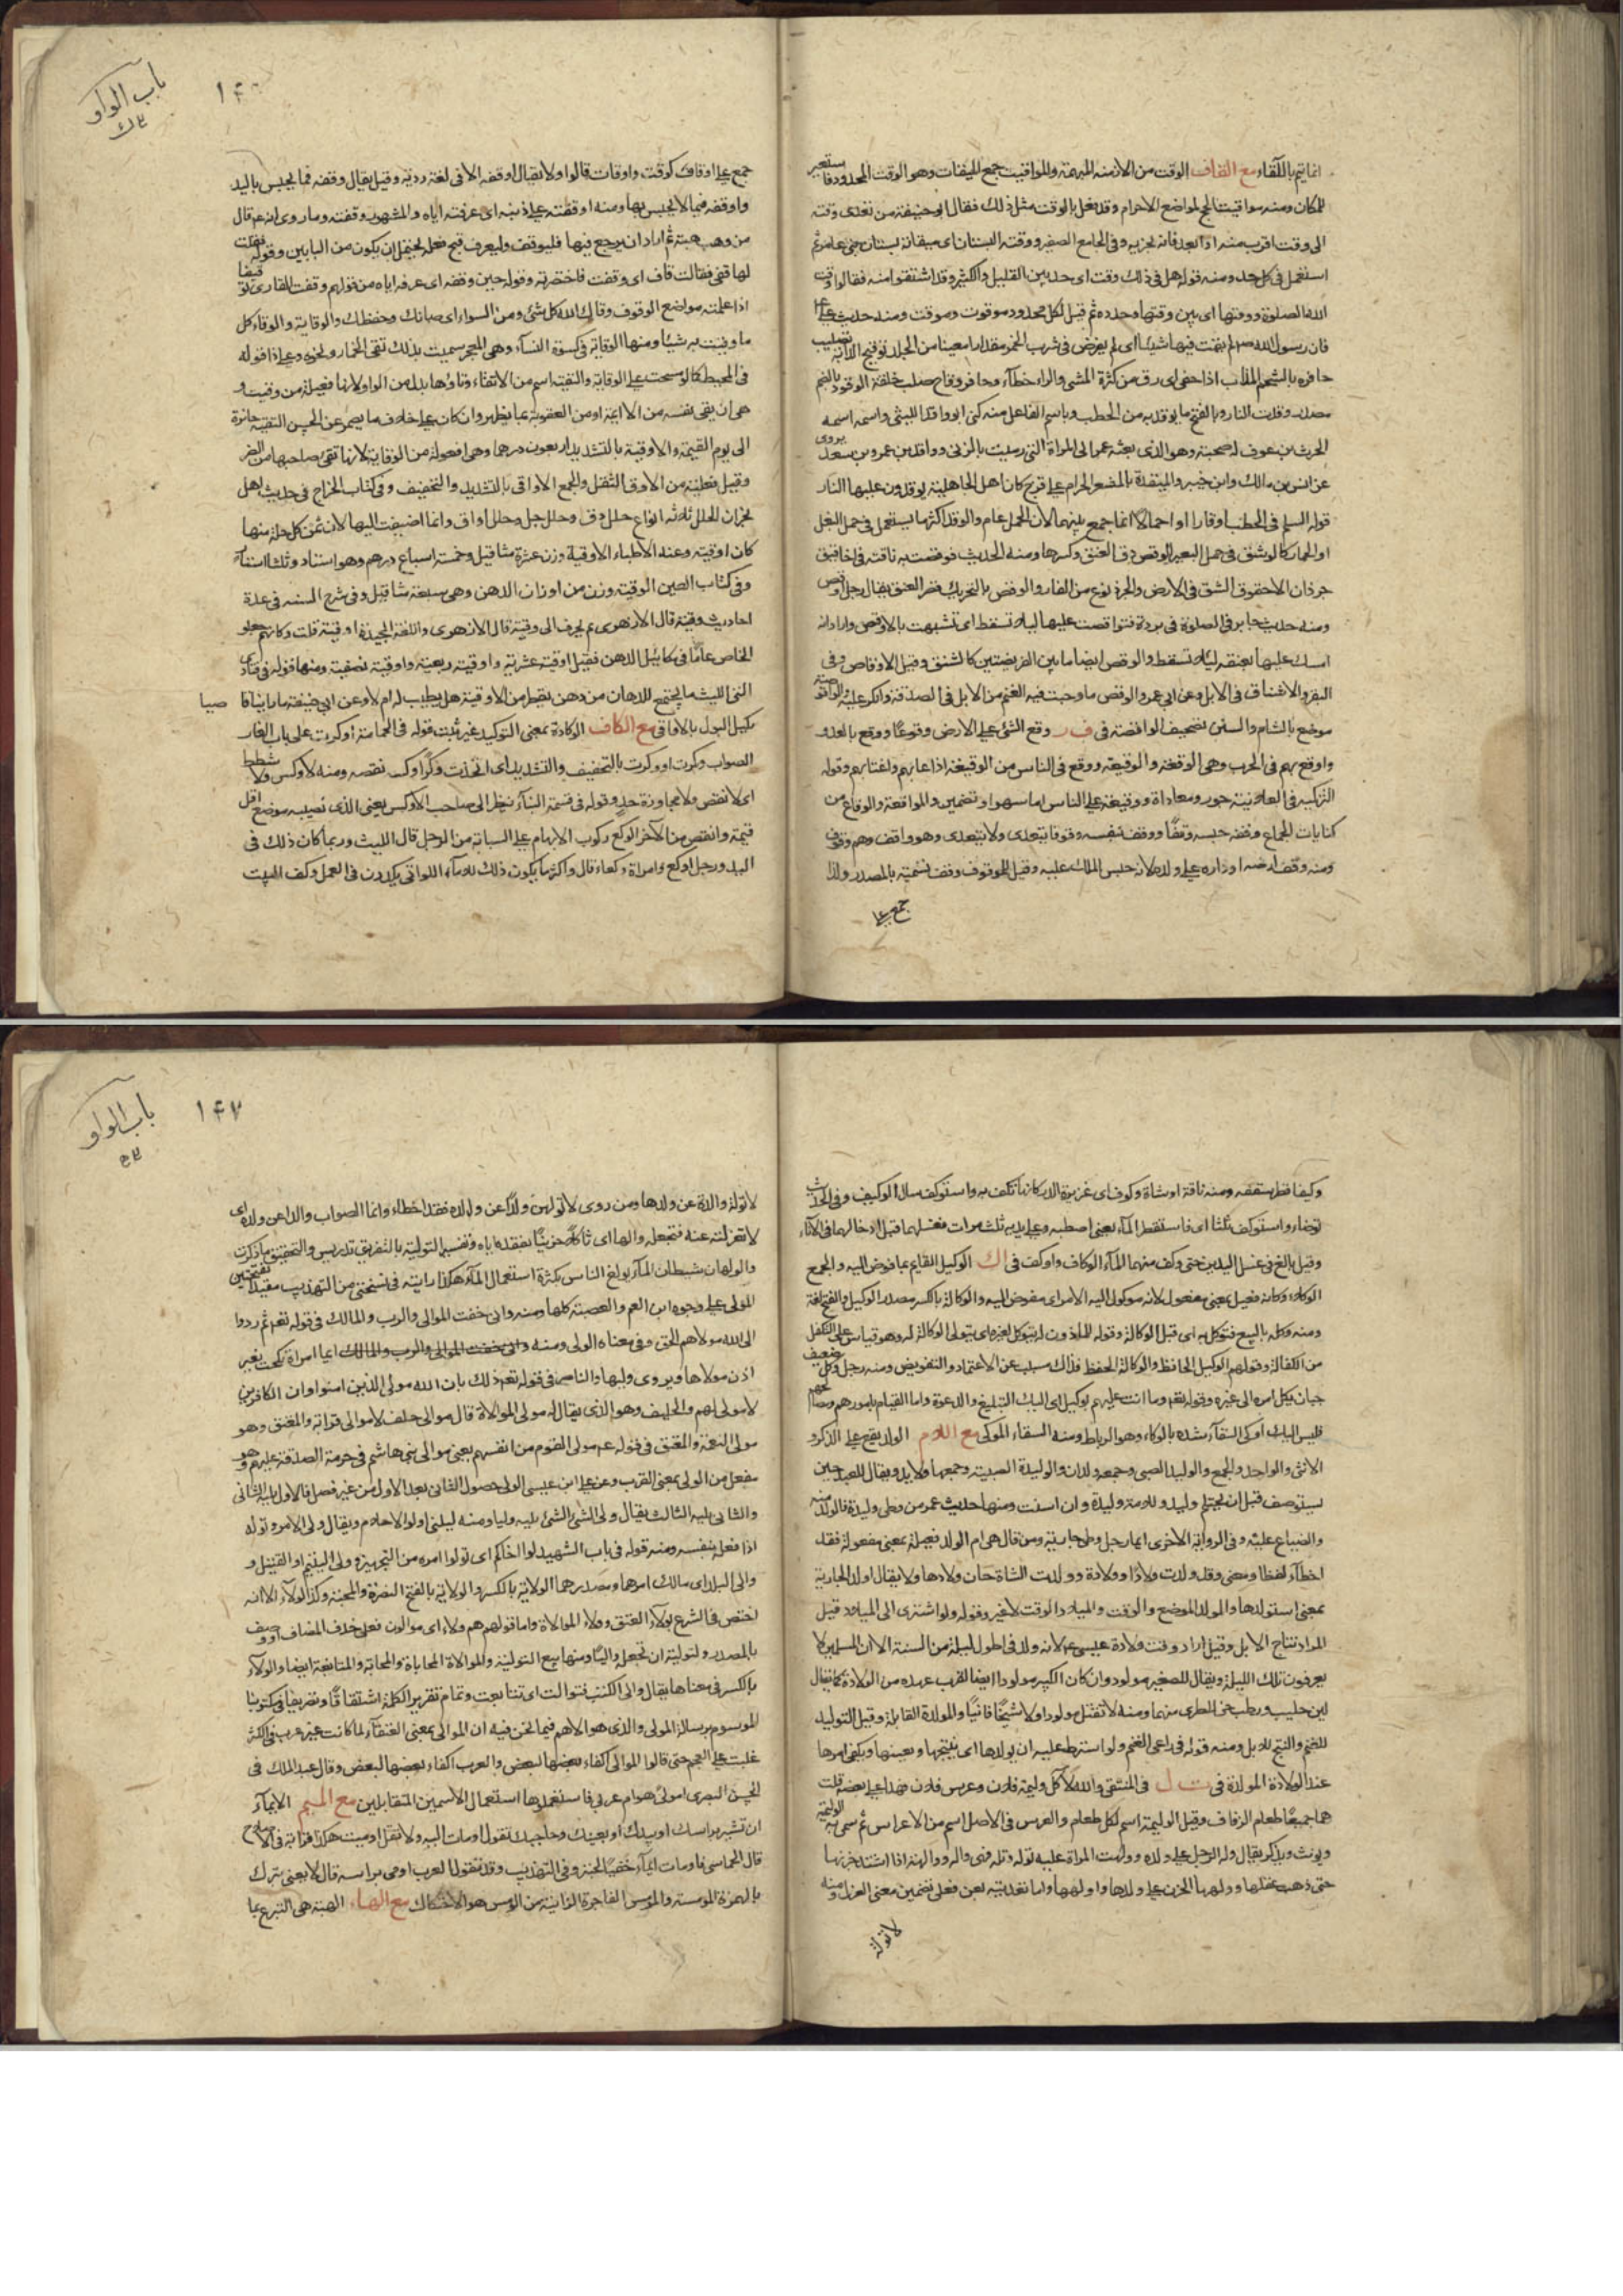 انما يتم بالالتقاء مع القاف الوقت من الازمنه المبهمة والمواقيت جمع الميقات وهو الوقت المحدود فاستعير
للمكان ومنه مواقيت الحج لمواضع الاحرام وقد فعل بالوقت مثل ذلك فقال ابو حنيفة من تعدى وقته
الى وقت اقرب منه او ابعد فانه يجزيه وفى الجامع الصغير ووقته البستان اى ميقاته بستان بنى عامر ثم
استعمل فى كل حد ومنه قوله هل فى ذلك وقت اى حد بين القليل والكثير وقد اشتقوا منه فقالوا وقت
الله الصلوة ووقتها اى بين وقتها وحدده ثم قيل لكل محدود موقوت وموقت ومنه حديث على
فان رسول الله صلم لم يقت فيها شيئا اى لم يفرض فى شرب الخمر مقدارا معينا من الجلد توقيح الدابة تصليب
حافره بالشحم المذاب اذا حفى اى رق من كثرة المشى والراء خطأ وحافر وقاح صلب خلقة الوقود بالضم
مصدر وقدت النار وبالفتح ما يوقد به من الحطب وباسم الفاعل منه كنى ابو واقد الليثى واسمه
الحرث بن عوف له صحبة وهو الذى بعثه عمر الى المراة التى رميت بالزنى وواقد بن عمرو بن سعد يروى
عن انس بن مالك وابن جبير والميقدة بالمشعر الحرام على قزح كان اهل الجاهلية يوقدون عليها النار
قوله السلم فى الحطب اوقارا او احمالا انما جمع بينهما لان الحمل عام والوقر اكثر ما يستعمل فى حمل البغل
او الحمار كالوسق فى حمل البعير الوقص دق العنق وكسرها ومنه الحديث فوقصت به ناقته فى اخاقيق
جرذان الاخقوق الشق فى الارض والجرذ نوع من الفار والوقص بالتحريك قصر العنق يقال رجل اوقص
ومنه حديث جابر فى الصلوة فى بردة فتواقصت عليها ليلا تسقط اى تشبهت بالاوقص واراد انه
امسك عليها بعنقه ليلا تسقط والوقص ايضا ما بين الفريضتين كالشنق وقيل الاوقاص فى
البقر والاشناق فى الابل وعن ابى عمرو الوقص ما وجبت فيه الغنم من الابل فى الصدقة وانكر عليه الواقوصة
موضع بالشام والسين تصحيف الواقصة فى ف ر وقع الشئ على الارض وقوعا ووقع بالعدو
واوقع بهم فى الحرب وهى الوقعة والوقيعة ووقع فى الناس من الوقيعة اذا عابهم واغتابهم وقوله
التزكية فى العلانية جور ومعاداة ووقيعة على الناس اما سهو او تضمين والمواقعة والوقاع من
كنايات الجماع وقفه حبسه وقفا ووقف بنفسه وقوفا يتعدى ولا يتعدى وهو واقف وهم وقوف
ومنه وقف ارضه او داره على ولده لانه حبس الملك عليه وقيل للموقوف وقف تسمية بالمصدر ولذا
جمع على
باب الواو
جمع على اوقاف كوقت واوقات قالوا ولا يقال اوقفه الا فى لغة ردية وقيل يقال وقفه فيما يحبس باليد
واوقفه فيما لا يحبس بها ومنه اوقفته على ذنبه اى عرفته اياه والمشهور وقفته وما روى انه عم قال
من وهب هبة ثم اراد ان يرجع فيها فليوقف وليعرف قبح فعله يحتمل ان يكون من البابين وقوله فقلت
لها قفى فقالت قاف اى وقفت فاختصرته وقوله حين وقفه اى عرفه اياه من قولهم وقفت القارى توقيفا
اذا علمته مواضع الوقوف وقاك الله كل شئ ومن السوء اى صانك وحفظك والوقاية والوقاء كل
ما وقيت به شيئا ومنها الوقاية فى كسوة النساء وهى المعجر سميت بذلك لانها تقى الخمار ونحوه وعلى ذا قوله
فى المحيط كالو مسحت على الوقاية والتقية اسم من الاتقاء وتاؤها بدل من الواو لانها فعيلة من وقيت و
هى ان يقى نفسه من اللائمة او من العقوبة بما يظهر وان كان على خلاف ما يضمر عن الحسن التقية جائزة
الى يوم القيمة والاوقية بالتشديد اربعون درهما وهى افعولة من الوقاية لانها تقى صاحبها من الضر
وقيل فعلية من الاوق الثقل والجمع الاواقى بالتشديد والتخفيف وفى كتاب الخراج فى حديث اهل
نجران الحلل ثلاثة انواع حلل دق وحلل جل وحلل اواق وانما اضيفت اليها لان ثمن كل حلة منها
كان اوقية وعند الاطباء الاوقية وزن عشرة مثاقيل وخمسة اسباع درهم وهو استار وثلثا استار
وفى كتاب العين الوقية وزن من اوزان الدهن وهى سبعة مثاقيل وفى شرح السنه فى عدة
احاديث وقية قال الازهرى
الخاص عاما فى مكاييل الدهن فقيل اوقية عشرية واوقية ربعية واوقية نصفية ومنها قوله فى فتاوى
ابى الليث ما يجتمع للدهان من دهن يقطر من الاوقية هل يطيب له ام لا وعن ابى حنيفة ما باينا فا صبيا
يكيل البول بالاواقى مع الكاف الوكادة بمعنى التوكيد غير ثبت قوله فى الحمامة اوكرت على باب الغار
الصواب وكرت او وكرت بالتخفيف والتشديد اى اتخذت وكرا وكس نقصه ومنه لا وكس ولا شطط
اى لا نقص ولا مجاوزة حد وقوله فى قسمة البناء ينظر الى صاحب الاوكس يعنى الذى نصيبه موضع اقل
قيمة وانقص من الآخر الوكع ركوب الابهام على السبابة من الرجل قال الليث وربما كان ذلك فى
اليد ورجل اوكع وامراة وكعاء قال واكثر ما يكون ذلك للاماء اللواتى يكددن فى العمل وكف البيت
وكيفا قطر سقفه ومنه ناقة او شاة وكوف اى غزيرة الدر كانها تكف به واستوكف سال الوكيف وفى الحديث
توضاء واستوكف ثلثا اى فاستقطر الماء يعنى اصطبه على يديه ثلث مرات فغسلهما قبل ادخالهما فى الاناء
وقيل بالغ فى غسل اليدين حتى وكف منهما الماء الوكاف واوكف فى اك الوكيل القايم بما فوض اليه والجمع
الوكلاء وكانه فعيل بمعنى مفعول لانه موكول اليه الامر اى مفوض اليه والوكالة بالكسر مصدر الوكيل والفتح لغة
ومنه وكله بالبيع فتوكل به اى قبل الوكالة وقوله للماذون له يتوكل لغيره اى يتولى الوكالة له وهو قياس على التكفل
من الكفالة وقولهم الوكيل الحافظ والوكالة الحفظ فذاك مسبب عن الاعتماد والتفويض ومنه رجل وكل ضعيف
جبان يكل امره الى غيره وقوله تعم وما انت عليهم بوكيل اى اليك التبليغ والدعوة واما القيام بامورهم ومصالحهم
فليس اليك اوكى السقاء شده بالوكاء وهو الرباط ومنه السقاء الموكى مع اللام الولد يقع على الذكر و
الانثى والواحد والجمع والوليد الصبى وجمعه ولدان والوليدة الصبية وجمعها ولايد ويقال للعبد حين
يستوصف قبل ان يحتلم وليد وللامة وليدة وان اسنت ومنها حديث عمر من وطى وليدة فالولد منه
والضياع عليه وفى الرواية الاخرى ايما رجل وطى جارية ومن قال هى ام الولد فعيلة بمعنى مفعولة فقد
اخطأ لفظا ومعنى وقد ولدت ولادا وولادة وولدت الشاة حان ولادها ولا يقال اولد الجارية
بمعنى استولدها والمولد الموضع والوقت والميلاد الوقت لا غير وقوله ولو اشترى الى الميلاد قيل
المراد نتاج الابل وقيل اراد وقت ولادة عيسى عم لانه ولد فى اطول ليلة من السنة الا ان المسلمين لا
يعرفون تلك الليلة ويقال للصغير مولود وان كان الكبير مولودا ايضا لقرب عهده من الولادة كما يقال
لبن حليب ورطب جنى للطرى منهما ومنه لا تقتل مولودا ولا شيخا فانيا والمولدة القابلة وقيل التوليد
للغنم والنتج للابل ومنه قوله فى راعى الغنم ولو اشترط عليه ان يولدها اى ينتجها ويعينها ويكفى امرها
عند الولادة المولدة فى ت ل فى المنتقى والله لا آكل وليمة فلان وعرس فلان فهذا على بعضه قلت
هما جميعا طعام الزفاف وقيل الوليمة اسم لكل طعام والعرس فى الاصل اسم من الاعراس ثم سمى به الوليمة
ويونث ويذكر يقال وله الرجل على ولده وولهت المراة عليه توله وتله فهى واله ووالهة اذا اشتد حزنها
حتى ذهب عقلها وولهها الحزن على ولدها واولهها واما تعديته بعن فعلى تضمين معنى العزل ومنه
لا توله
باب الواو
١٤٧
لا توله والدة عن ولدها ومن روى لا تولهن ولدا عن والده فقد اخطاء وانما الصواب والدا عن ولده اى
لا تعزلنه عنه فتجعله والها اى ثاكلا حزينا بفقده اياه وتفسير التولية بالتفريق تدريس والتحقيق ما ذكرت
والولهان شيطان الماء يولع الناس بكثرة استعمال الماء هكذا رايته فى نسختى من التهذيب مقيدا بفتحتين
المولى على وجوه ابن العم والعصبة كلها ومنه وانى خفت الموالى والرب والمالك فى قوله تعم ثم ردوا
الى الله مولاهم الحق وفى معناه الولى ومنه وانى خفت الموالى والرب والمالك ايما امراة نكحت بغير
اذن مولاها ويروى وليها والناصر فى قوله تعم ذلك بان الله مولى الذين امنوا وان الكافرين
لا مولى لهم والحليف وهو الذى يقال له مولى الموالاة قال موالى حلف لا موالى قرابة والمعتق وهو
مولى النعمة والمعتق فى قوله عم مولى القوم من انفسهم يعنى موالى بنى هاشم فى حرمة الصدقة عليهم وهو
مفعل من الولى بمعنى القرب وعن على ابن عيسى الولى حصول الثانى بعد الاول من غير فصل فالاول يليه الثانى
والثانى يليه الثالث يقال ولى الشئ الشئ يليه وليا ومنه ليلنى اولوا الاحلام ويقال ولى الامر وتولاه
اذا فعله بنفسه ومنه قوله فى باب الشهيد لوا اخاكم اى تولوا امره من التجهيز وولى اليتيم او القتيل و
والى البلد اى مالك امرهما ومصدرهما الولاية بالكسر والولاية بالفتح النصرة والمحبة وكذا الولاء الا انه
اختص فى الشرع بولاء العتق وولاء الموالاة واما قولهم هم ولاء اى موالون فعلى حذف المضاف او وصف
بالمصدر والتولية ان تجعله واليا ومنها بيع التولية والموالاة المحاباة والمحابة والمتابعة ايضا والولاء
بالكسر فى معناها يقال والى الكتب فتوالت اى تتابعت وتمام تقرير الكلمة اشتقاقا وتصريفا فى مكتوبنا
الموسوم برسالة المولى والذى هو الاهم فيما نحن فيه ان الموالى بمعنى العتقاء لما كانت غير عرب فى الاكثر
غلبت على العجم حتى قالوا الموالى اكفاء بعضها لبعض والعرب اكفاء بعضها لبعض وقال عبد الملك فى
الحسن البصرى امولى هو ام عربى فاستعملوها استعمال الاسمين المتقابلين مع الميم الايماء
ان تشير براسك او بيدك او بعينك او حاجبك تقول اومات اليه ولا تقل اوميت هكذا قراته فى الاصلاح
قال الحماسى فاومات ايماء خفيا لحبتر وفى التهذيب وقد تقول العرب اومى براسه قال لا يعنى ترك
بالهمزة المومسة والمومس الفاجرة الزانية من الومس هو الاحتكاك مع الهاء الهبة هى التبرع بما